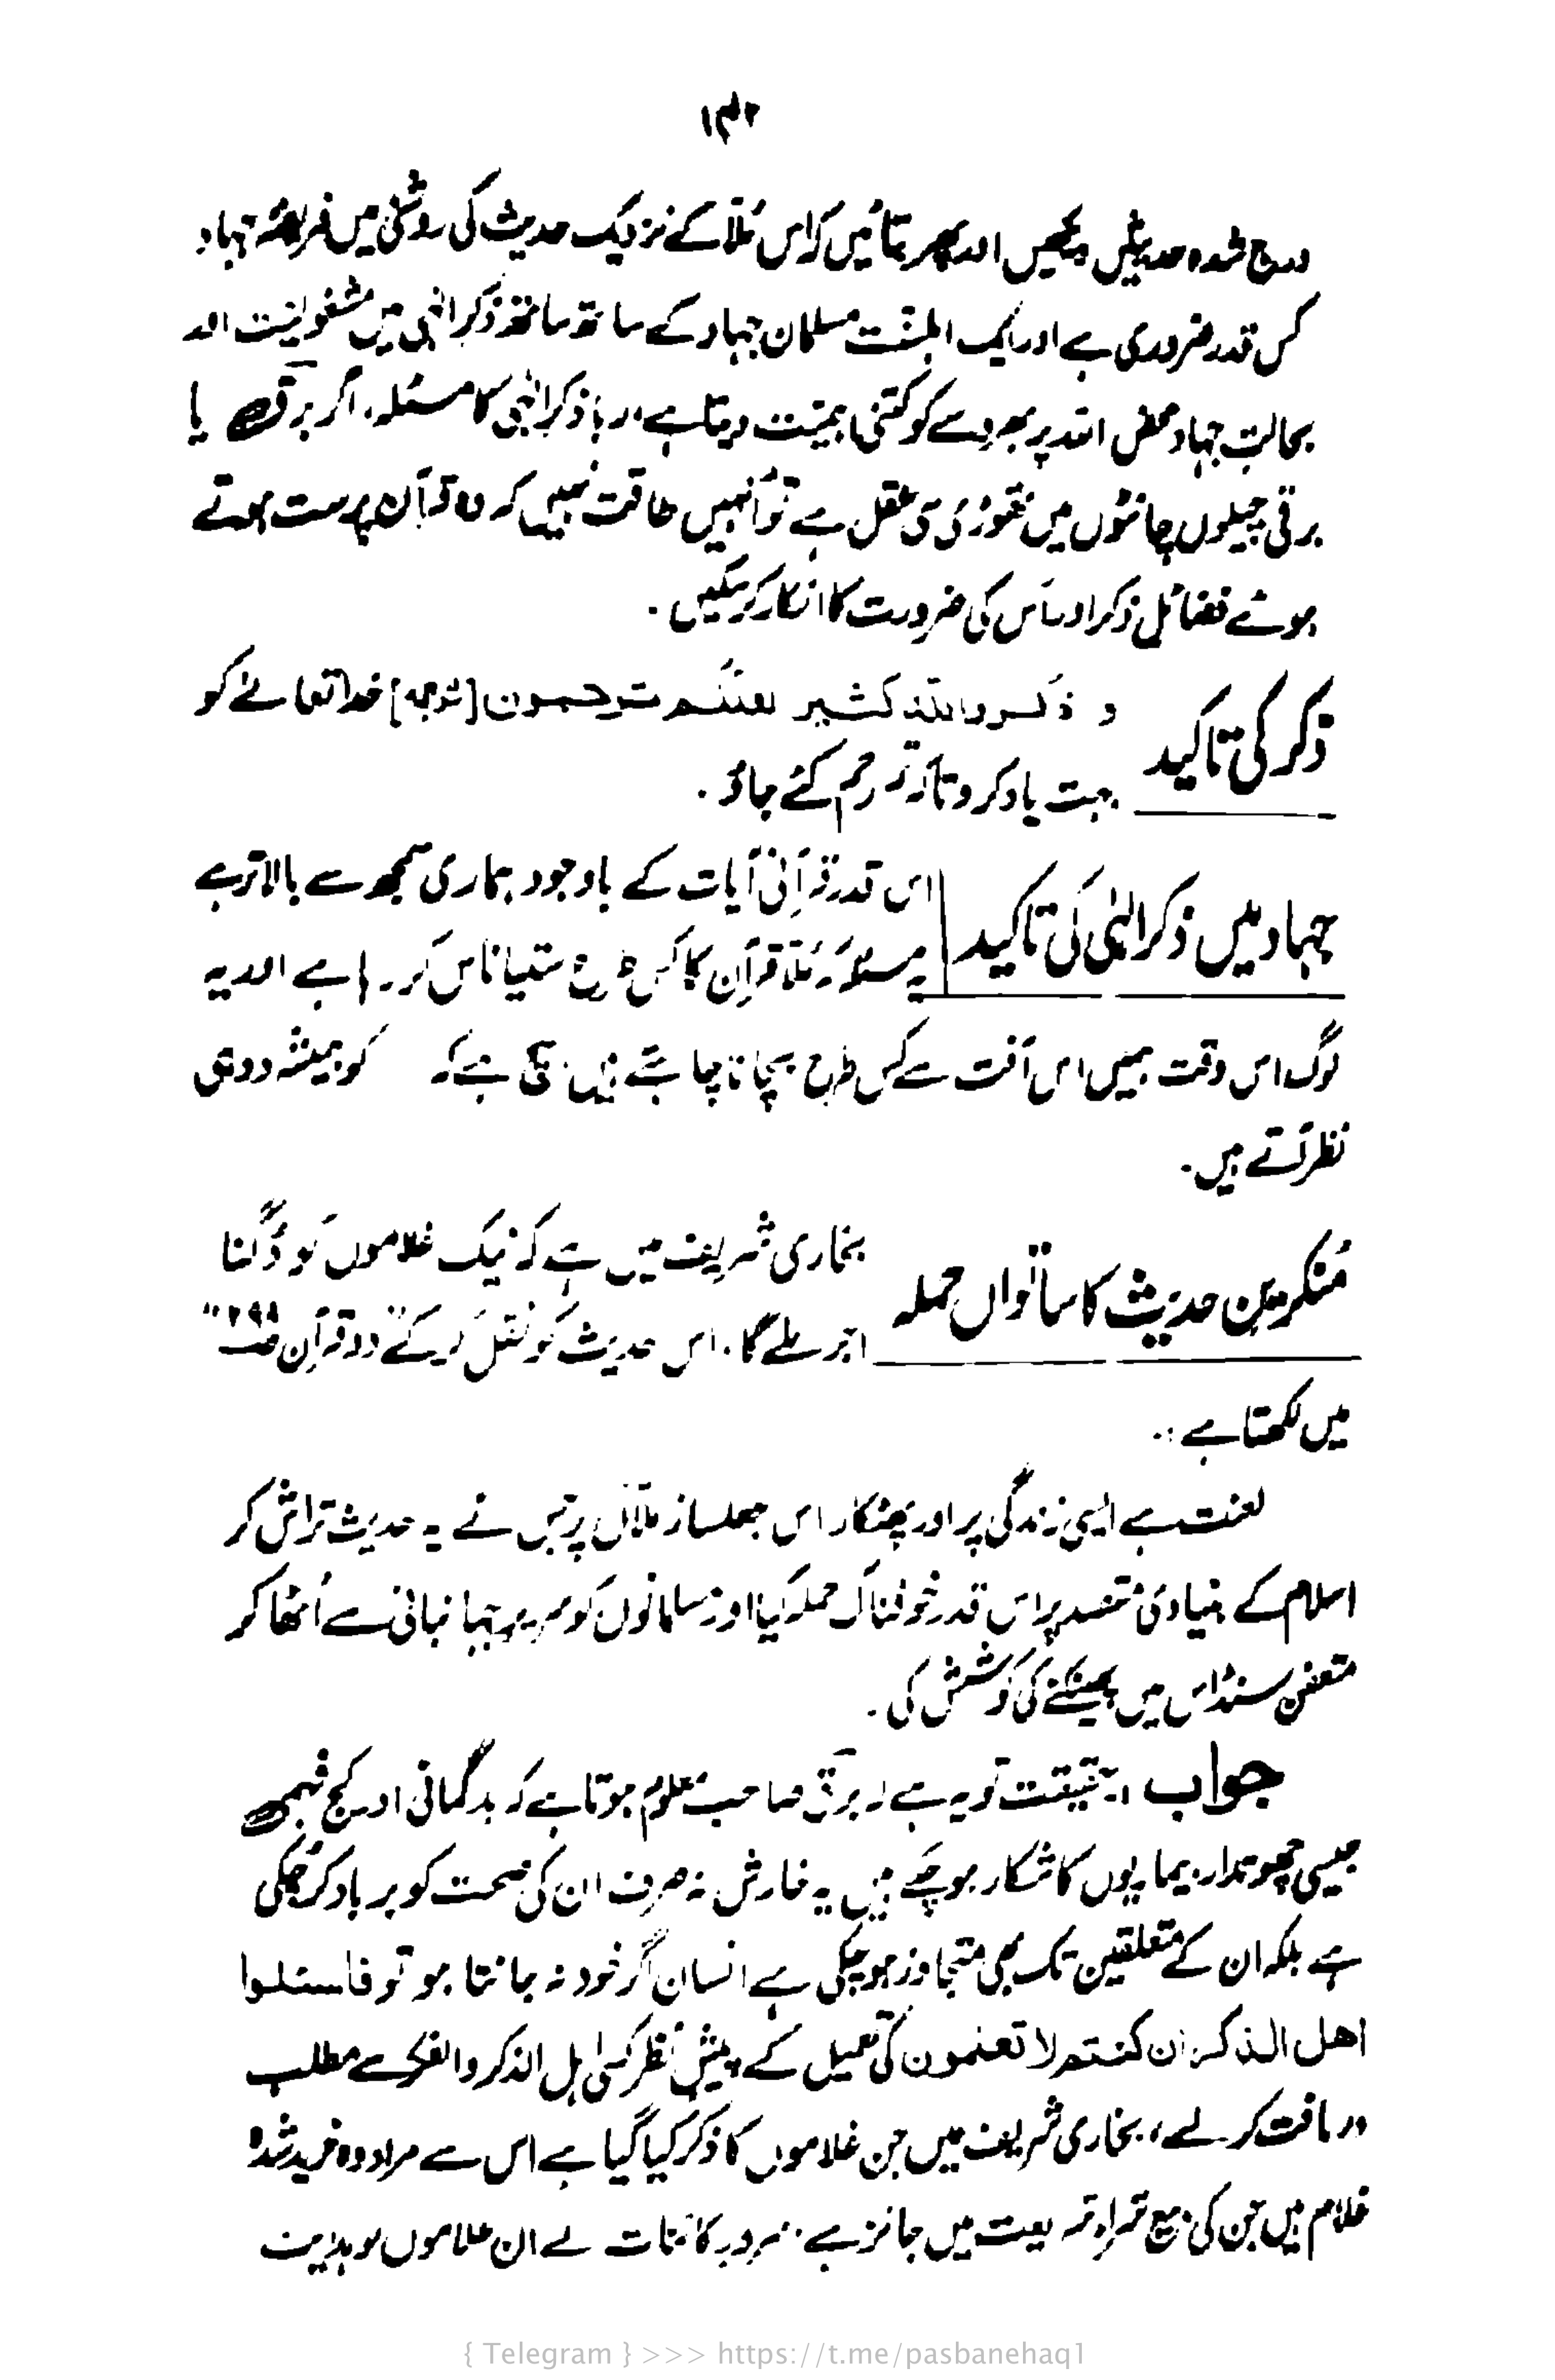 ۱۴۲
درج شدہ حدیثیں دیکھیں اور پھر بتائیں کہ اس مُلّا کے نزدیک حدیث کی روشنی میں فریضۂ جہاد
کس قدر ضروری ہے اور ایک اہلسنّت مسلمان جہاد کے ساتھ ساتھ ذکر الٰہی میں مشغولیت اور
بحالتِ جہاد محض اللہ پر بھروسے کو کتنی اہمیّت دیتا ہے، رہا ذکر الٰہی کا مسئلہ، اگر برقؔ یا
برقی چیلوں چانٹوں میں تھوڑی سی عقل ہے تو اُنہیں طاقت نہیں کہ وہ قرآن پرست ہوتے
ہوئے فضائل ذکر اور اس کی ضرورت کا انکار کر سکیں.
ذکر کی تاکید
و ذکروا اللہ کثیر لعلکم ترحمون [ترجمہ] خدا تعالےٰ کو
بہت یاد کرو تاکہ تم رحم کئے جاؤ.
جہاد میں ذکر الٰہی کی تاکید
اس قدر قرآنی آیات کے باوجود ہماری سمجھ سے بالاتر ہے
یہ مسئلہ کہ مُلّا قرآن کا کس طرح ستیاناس کر رہا ہے اور یہ
لوگ اس وقت ہمیں اس آفت سے کس طرح بچانا چاہتے ہیں. سچ ہے کہ کو ہمیشہ دو ہی
نظر آتے ہیں.
مُنکرین حدیث کا ساتواں حملہ
بخاری شریف میں ہے کہ نیک غلاموں کو دُگنا
اجر ملے گا. اس حدیث کو نقل کر کے "دو قرآن
میں لکھتا ہے :.
لعنت ہے ایسی زندگی پر اور پھٹکار اس جعلساز ملاّں پر جس نے یہ حدیث تراش کر
اسلام کے بنیادی مقصد پر اس قدر خوفناک حملہ کیا اور مسلمانوں کو سریر جہانبانی سے اُٹھا کر
متعفن سنڈاس میں پھینکنے کی کوشش کی.
جواب :. حقیقت تو یہ ہے کہ برق صاحب معلوم ہوتا ہے کہ بدگمانی اور کج فہمی
جیسی چھوتدار بیماریوں کا شکار ہو چکے ہیں یہ خارش نہ صرف ان کی صحت کو برباد کر چکی
ہے بلکہ ان کے متعلقین تک بھی متجاوز ہو چکی ہے انسان اگر خود نہ جانتا ہو تو فاسئلوا
اھل الذکر ان کنتم لا تعلمون کی تعمیل کے پیش نظر کسی اہل الذکر والفکر سے مطلب
دریافت کر لے، بخاری شریف میں جن غلاموں کا ذکر کیا گیا ہے اس سے مراد وہ خرید شدہ
غلام ہیں جن کی بیع شراء شریعت میں جائز ہے. سرور کائنات نے ان غلاموں کو ہدایت
{ Telegram } >>> https://t.me/pasbanehaq1